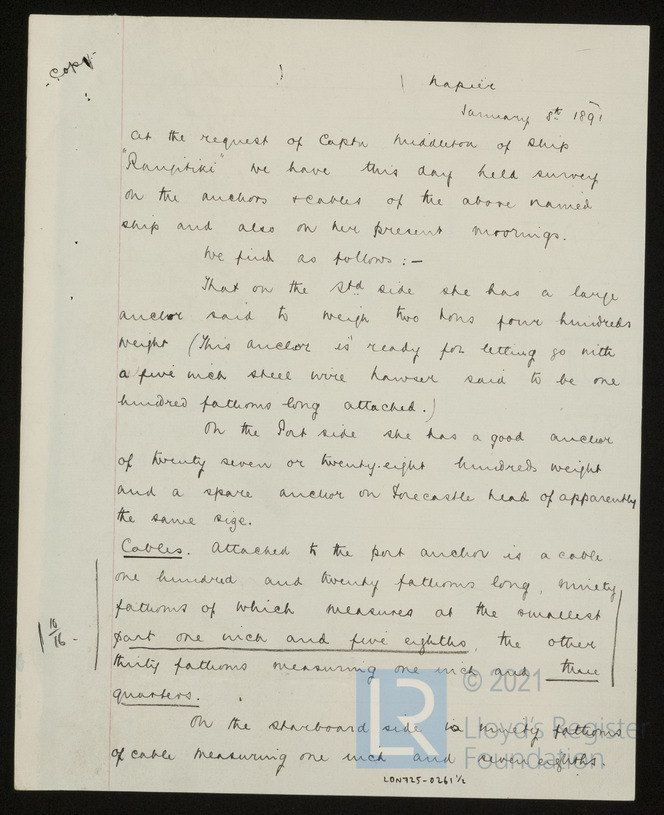 -Copy-
Napier
January 8th 1891
At the request of Captn Middleton of ship
"Rangitiki" we have this day held survey
on the anchors & cables of the above named
ship and also on her present moorings.
We find as follows:-
That on the Std side she has a large
anchor said to weigh two tons four hundreds
weight (This anchor is ready for letting go with
a five inch steel wire hawser said to be one
hundred fathoms long attached.)
On the Port side she has a good anchor
of twenty seven or twenty-eight hundreds weight
and a spare anchor on Forecastle head of apparently
the same size.
Cables. Attached to the port anchor is a cable
one hundred and twenty fathoms long, ninety
fathoms of which measures at the smallest
part one inch and five eighths, the other
thirty fathoms measuring one inch and three
quarters.
On the starboard side is ninety fathoms
of cable measuring one inch and seven eighths.
LR
© 2021
Lloyd's Register
Foundation
LON725-0261 1/2